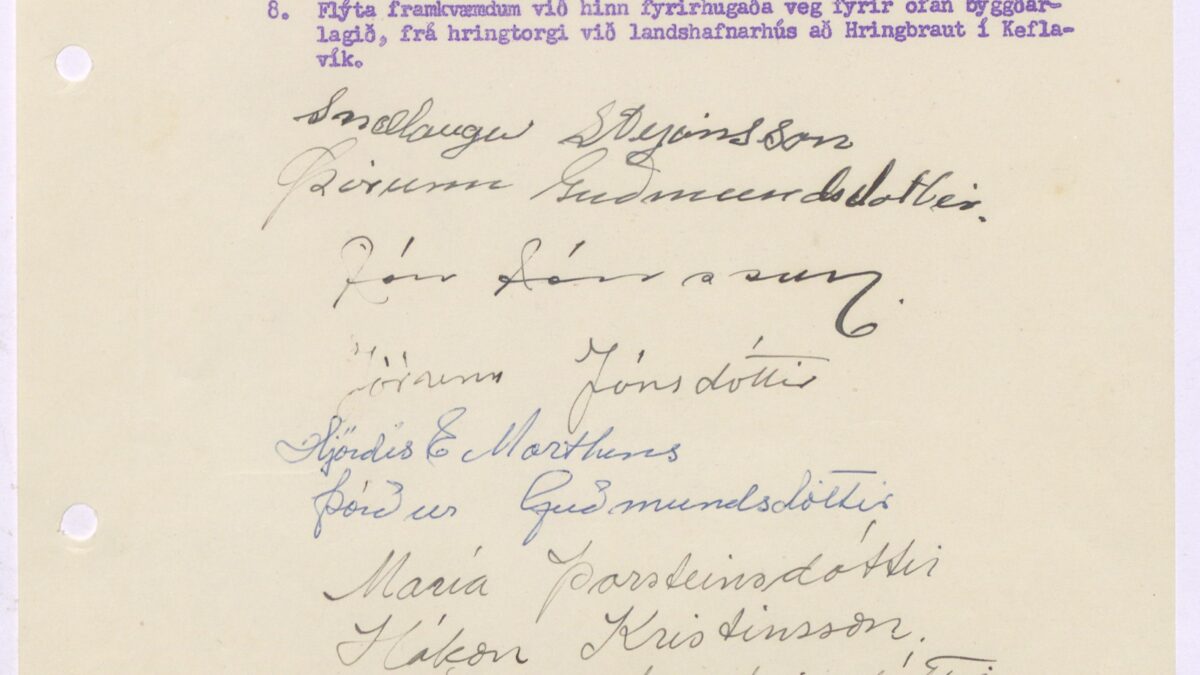 8. Flýta framkvæmdum við hinn fyrirhugaða veg fyrir ofan byggðar-
lagið, frá hringtorgi við landshafnarhús að Hringbraut í Kefla-
vík.
Þórunn Guðmundsdóttir.
Jón Jónsson
Jórunn Jónsdóttir
Hjördís E Morthens
Guðmundsdóttir
María Þorsteinsdóttir
Hákon Kristinsson.